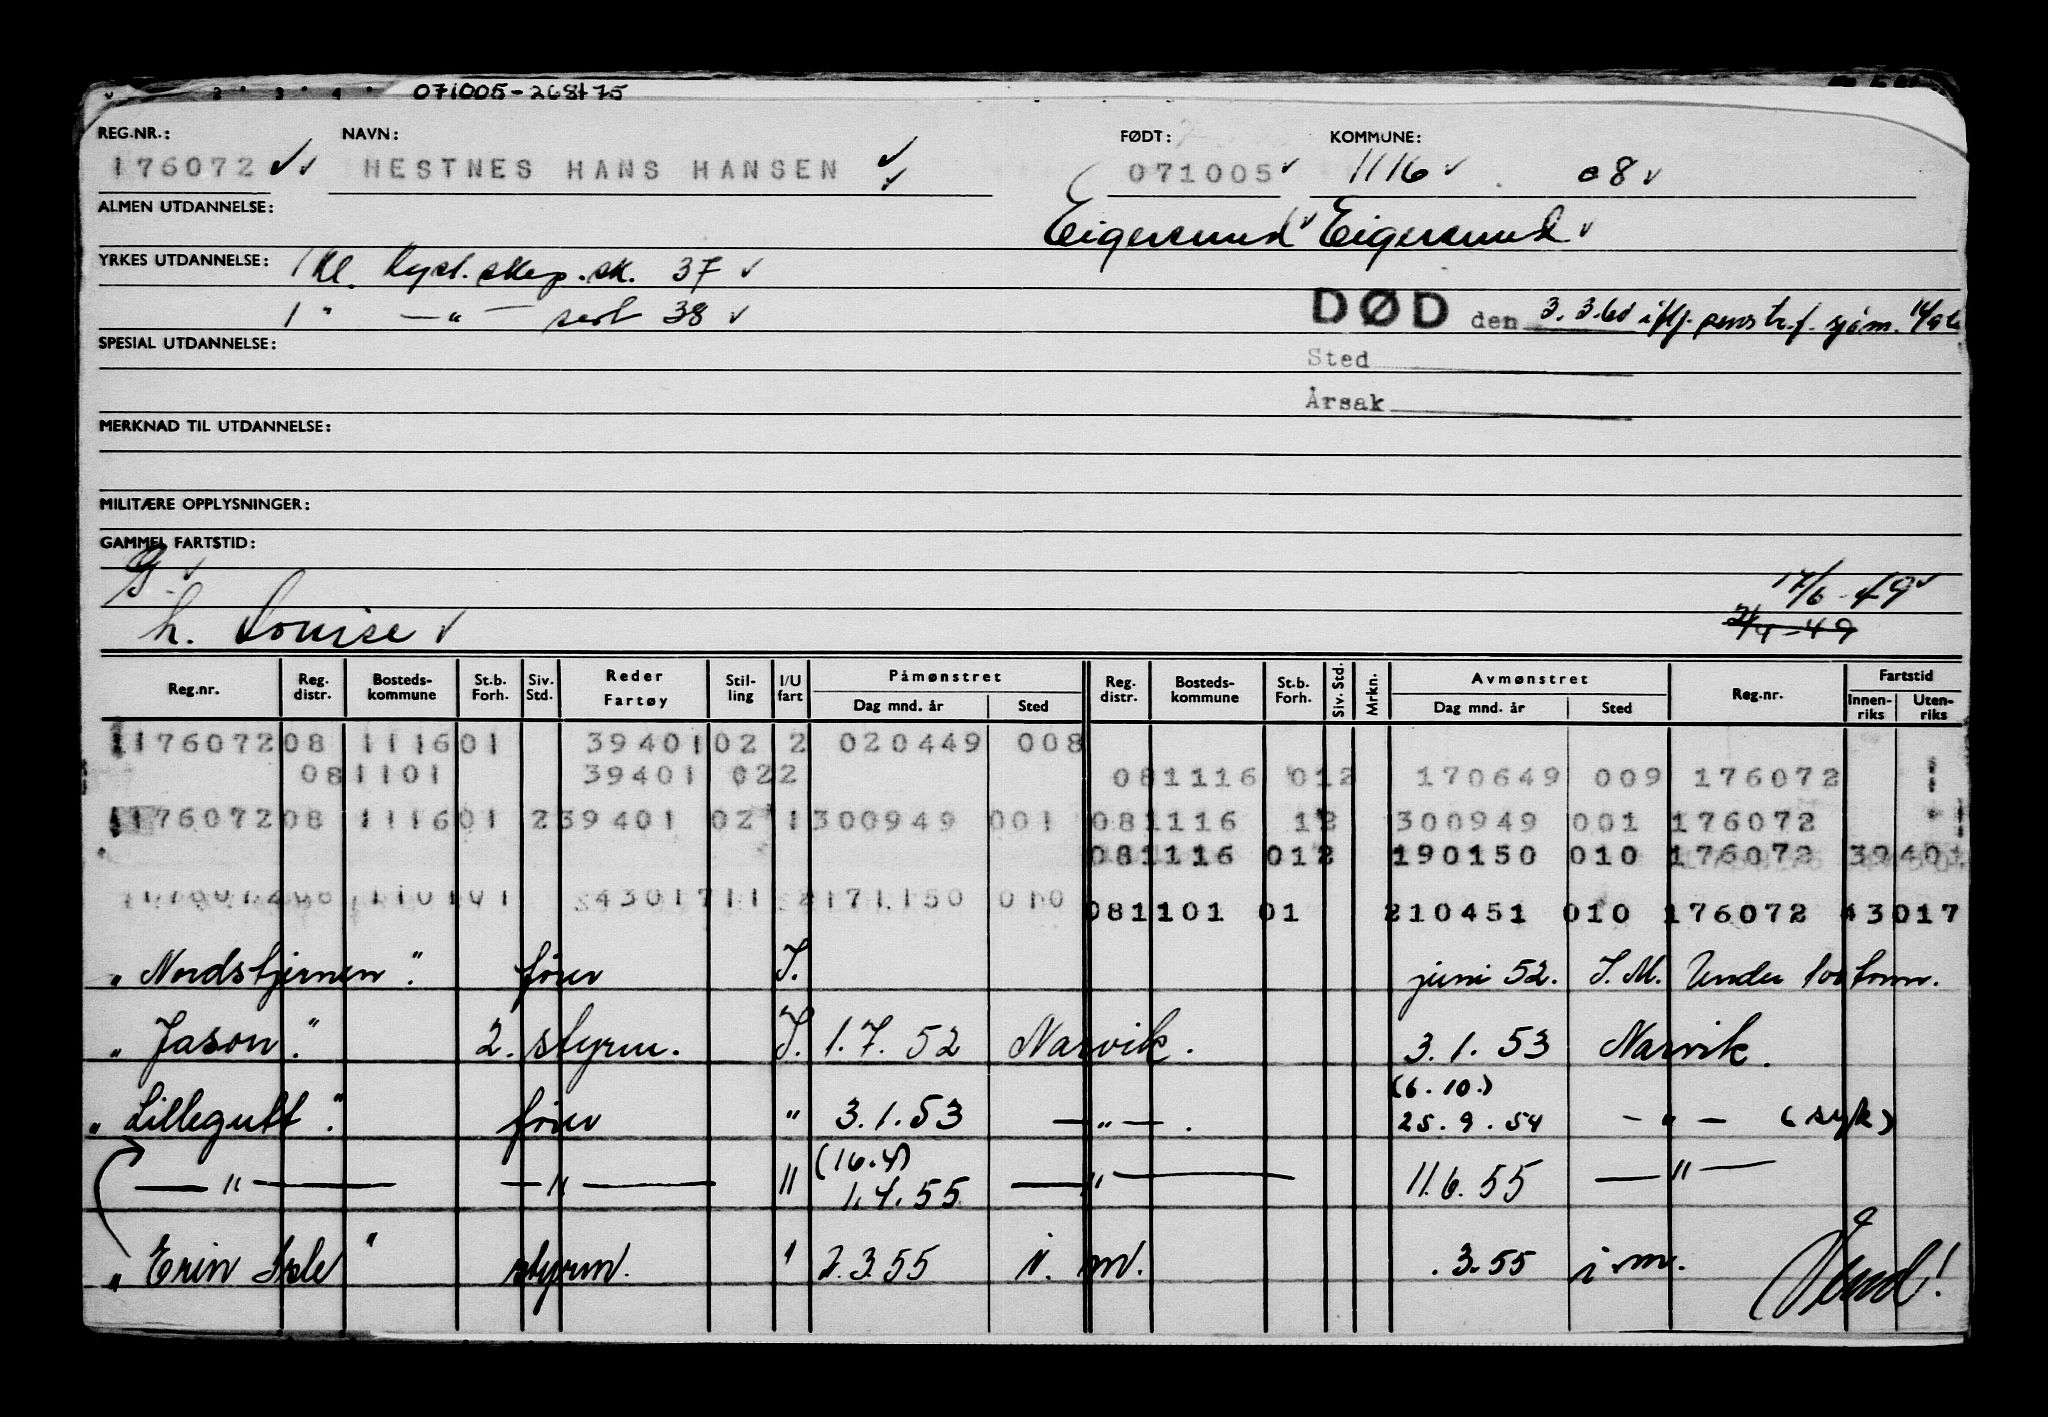 071005-26875
REG.NR.: NAVN: FØDT: KOMMUNE:
176072 HESTNES HANS HANSEN 071005 1116 08
ALMEN UTDANNELSE: Eigersund Eigersund
YRKES UTDANNELSE: 1 kl. kyst.skip.sk. 37
1 " — " — sert 38
DØD den 3.3.60 iflg. penstr.f. sjøm.
SPESIAL UTDANNELSE:
Sted
Årsak
MERKNAD TIL UTDANNELSE:
MILITÆRE OPPLYSNINGER:
GAMMEL FARTSTID:
17/6-49
L. Louise 2/4-49
Reg.nr. Reg. distr. Bosteds-kommune St.b. Forh. Siv. Std. Reder Fartøy Stil-ling I/U fart Påmønstret Dag mnd. år Sted Reg. distr. Bosteds-kommune St.b. Forh. Siv. Std. Mrkn. Avmønstret Dag mnd. år Sted Reg.nr. Fartstid Innen-riks Uten-riks
1176072 08 1116 01 39401 02 2 020449 008
08 1101 39401 022 081116 012 170649 009 176072
1176072 08 1116 01 2 39401 02 1 300949 001 081116 12 300949 001 176072
081116 012 190150 010 176072 39401
171150 010 081101 01 210451 010 176072 43017
"Nordstjernen". fører I. juni 52. I.M. Under 100 tonn.
"Jason". 2. styrm. I. 1.7.52 Narvik. 3.1.53 Narvik.
(6.10.)
"Lillegutt". fører " 3.1.53 — " — . 25.9.54 — " — (syk)
(16.4)
— " — — " — " 1.4.55 — " — 11.6.55 — " —
"Erin Isle" styrm. " 2.3.55 i. m. .3.55 i.m. Vend!